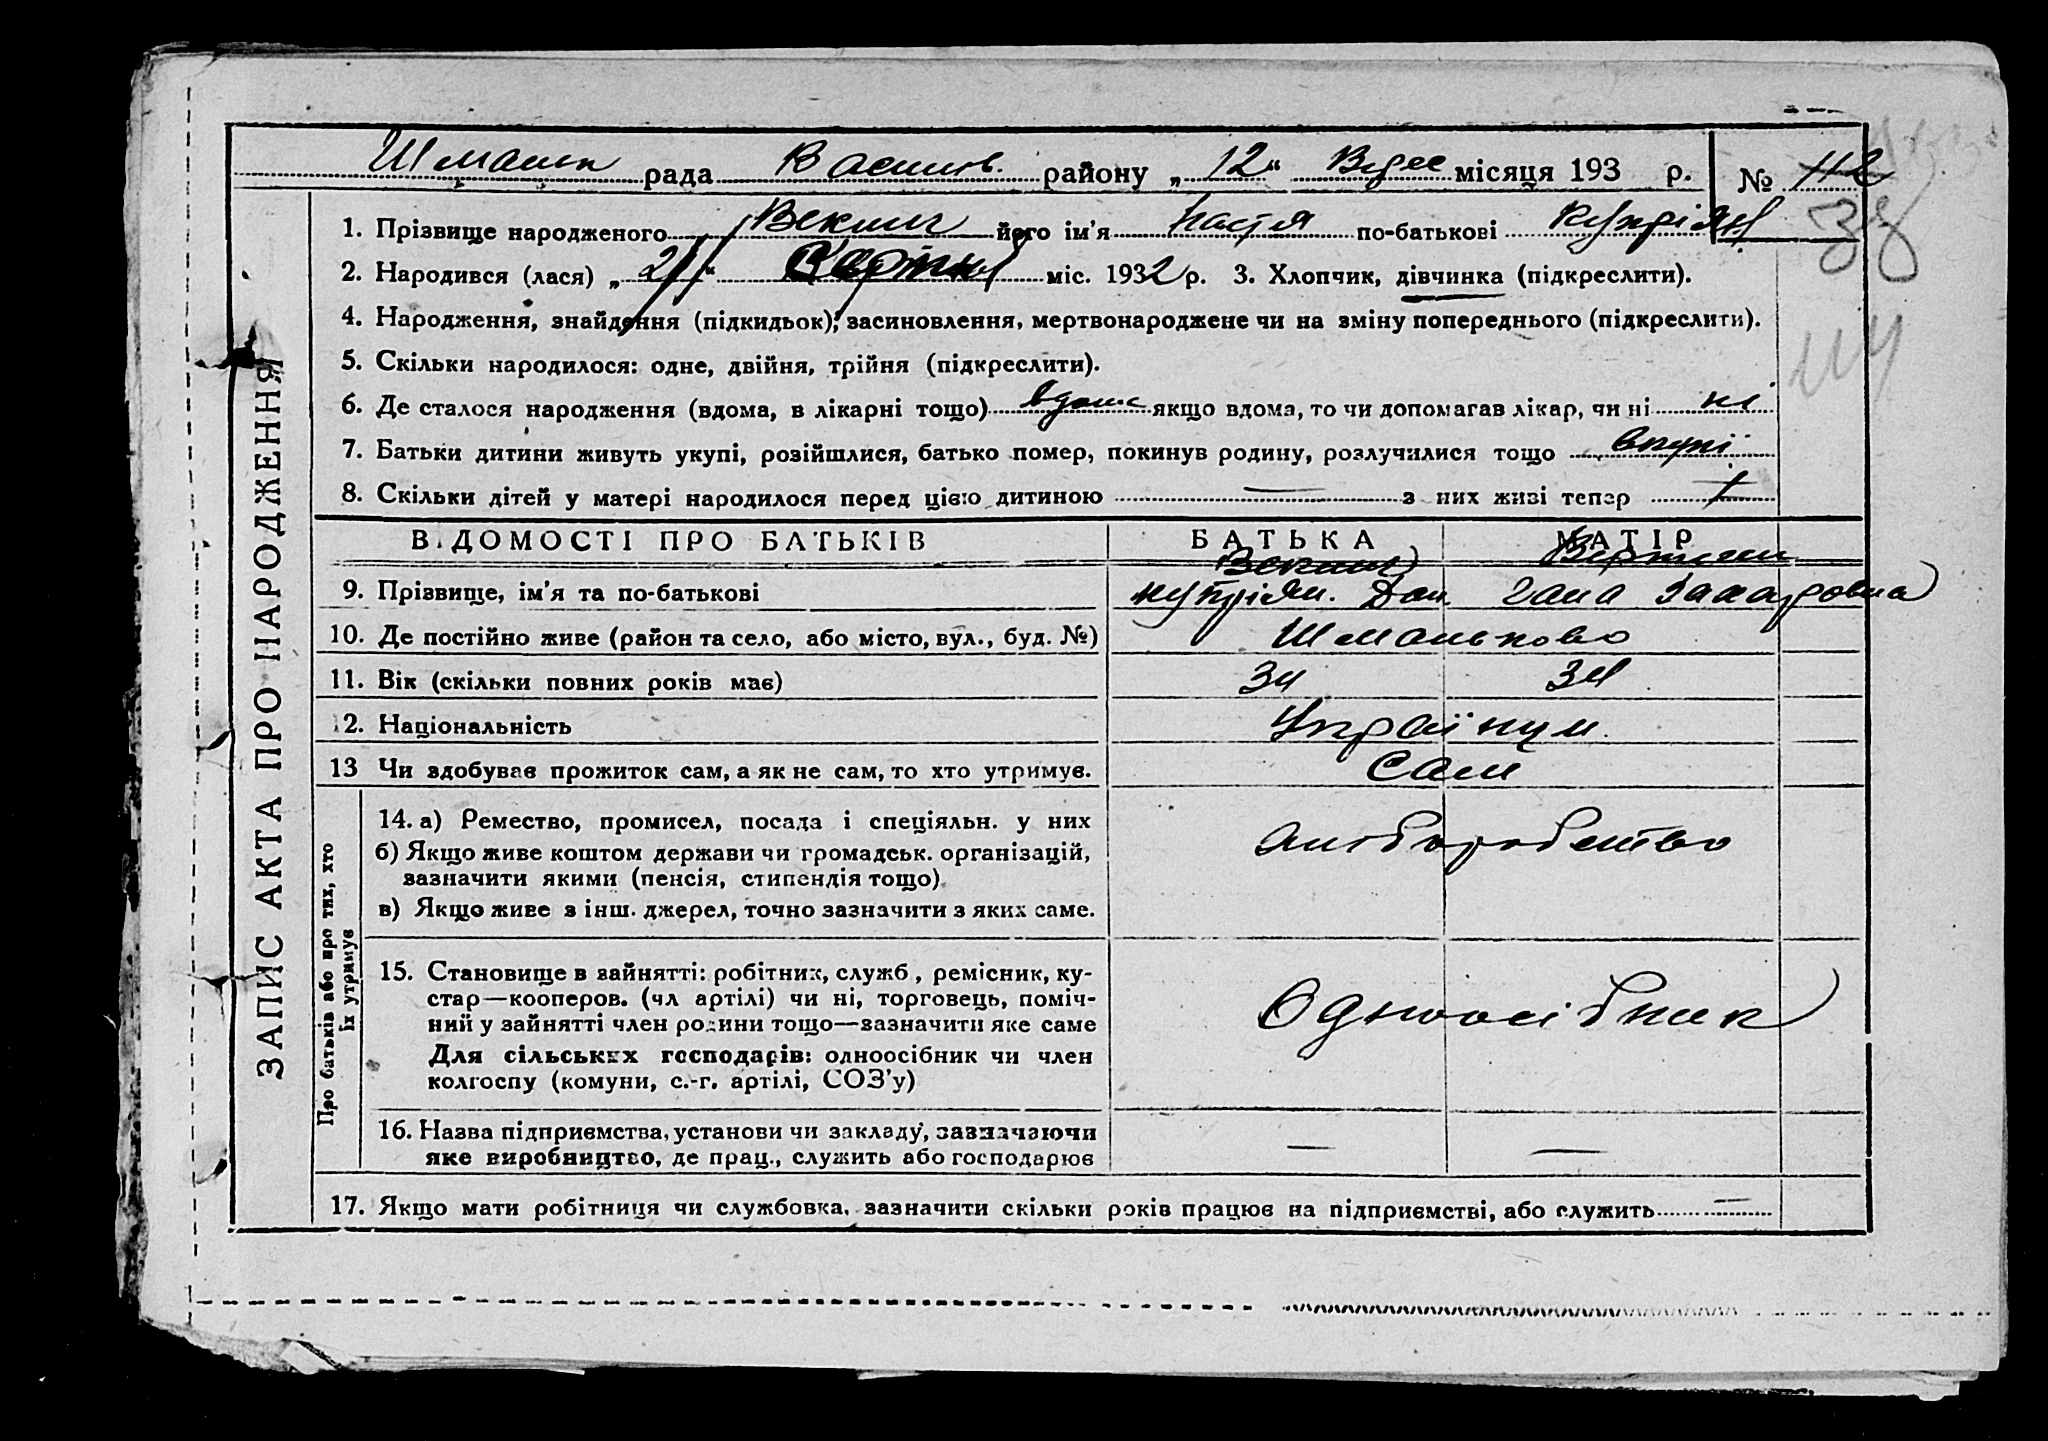 рада Василів. району „12“ Верес місяця 193 р. №
1. Прізвище народженого Векшич його ім'я Настя по-батькові Купріян
2. Народився (лася) „2“ міс. 1932 р. 3. Хлопчик, дівчинка (підкреслити).
38
4. Народження, знайдення (підкидьок), засиновлення, мертвонароджене чи на зміну попереднього (підкреслити).
114
5. Скільки народилося: одне, двійня, трійня (підкреслити).
6. Де сталося народження (вдома, в лікарні тощо) вдома якщо вдома, то чи допомагав лікар, чи ні ні
7. Батьки дитини живуть укупі, розійшлися, батько помер, покинув родину, розлучилися тощо вкупі
8. Скільки дітей у матері народилося перед цією дитиною — з них живі тепер
ВІДОМОСТІ ПРО БАТЬКІВ БАТЬКА МАТІР
9. Прізвище, ім'я та по-батькові Купріян. Гана Захаровна
10. Де постійно живе (район та село, або місто, вул., буд. №) Шманьково
11. Вік (скільки повних років має) 34 34
12. Національність Українци
13 Чи здобував прожиток сам, а як не сам, то хто утримує. Сам
14. а) Ремество, промисел, посада і спеціяльн. у них хлібборобство
б) Якщо живе коштом держави чи громадськ. організацій,
зазначити якими (пенсія, стипендія тощо)
в) Якщо живе з інш. джерел, точно зазначити з яких саме.
15. Становище в зайнятті: робітник, служб., ремісник, ку-
стар—кооперов. (чл артілі) чи ні, торговець, поміч-
ний у зайнятті член родини тощо—зазначити яке саме
Одноосібник
Для сільських господарів: одноосібник чи член
колгоспу (комуни, с.-г. артілі, СОЗ'у)
16. Назва підприємства, установи чи закладу, зазначаючи
яке виробництво, де прац., служить або господарює — —
17. Якщо мати робітниця чи службовка, зазначити скільки років працює на підприємстві, або служить —
ЗАПИС АКТА ПРО НАРОДЖЕННЯ
Про батьків або про тих, хто
їх утримує